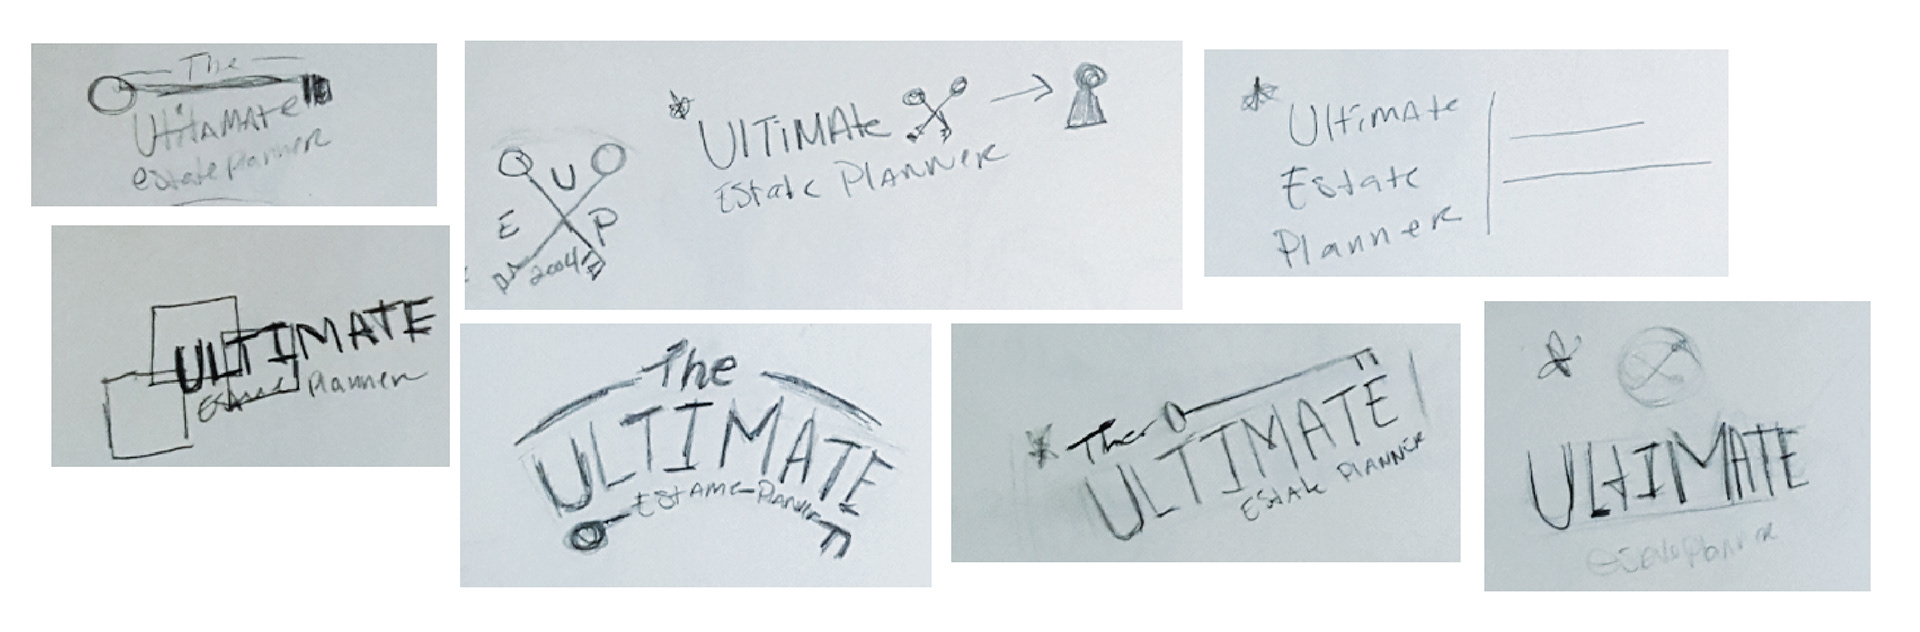 The
UltiMATE
estate planner
U
E P
2004
UlTiMAte
EState PlANNER
UltiMAte
Estate
Planner
ULTIMATE
Planner
The
ULTIMATE
The
ULTIMATE
EState PlANNER
ULtIMATE